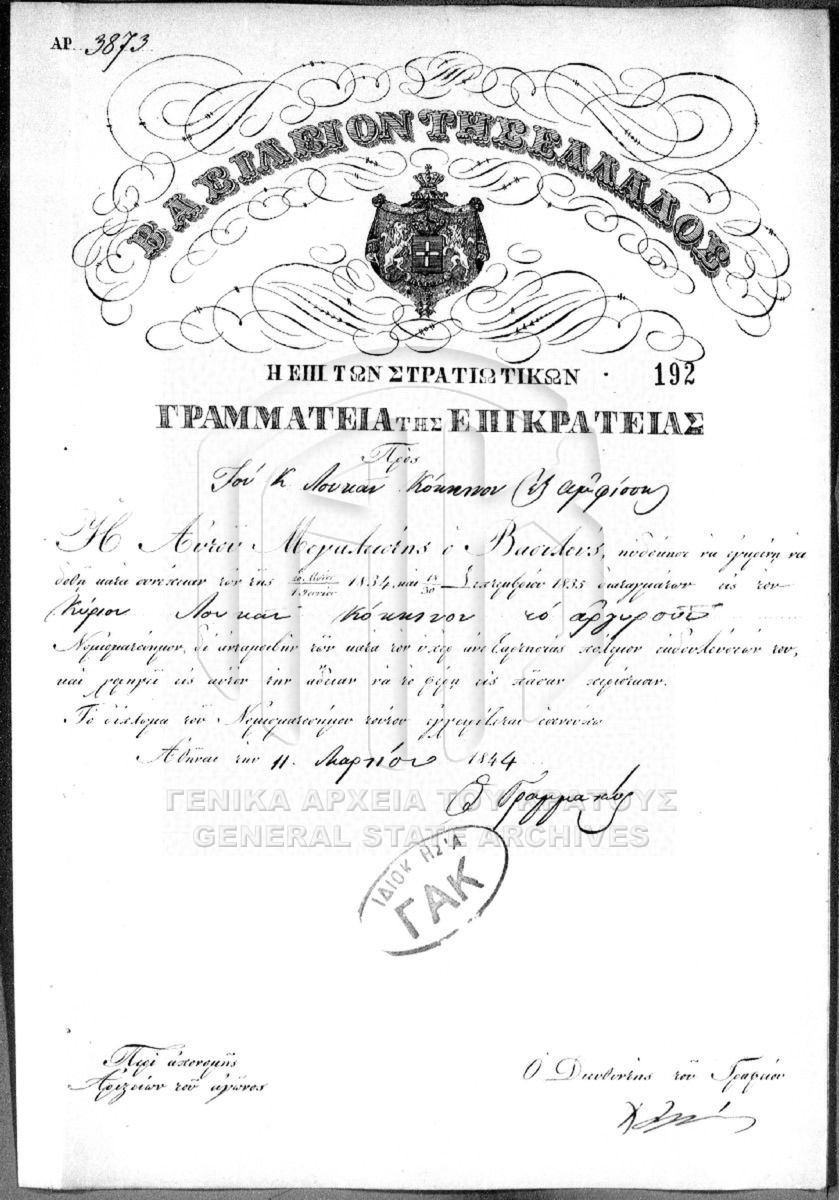 ΑΡ. 3873
ΒΑΣΙΛΕΙΟΝ ΤΗΣ ΕΛΛΑΔΟΣ
Η ΕΠΙ ΤΩΝ ΣΤΡΑΤΙΩΤΙΚΩΝ 192
ΓΡΑΜΜΑΤΕΙΑ ΤΗΣ ΕΠΙΚΡΑΤΕΙΑΣ
Πρὸς
Τὸν Κ. Λουκᾶν Κόκκινον
Ἡ Αὐτοῦ Μεγαλειότης ὁ Βασιλεύς, ηὐδόκησε νὰ ἐγκρίνῃ νὰ
δοθῇ κατὰ συνέχειαν τῶν τῆς 1834 καὶ 18/30 Σεπτεμβρίου 1835 διαταγμάτων εἰς τὸν
Κύριον Λουκᾶν Κόκκινον τὸ ἀργυροῦν
Νομισματόσημον, δι' ἀνταμοιβὴν τῶν κατὰ τὸν ὑπὲρ ἀνεξαρτησίας πόλεμον ἐκδουλεύσεών του,
καὶ χορηγεῖ εἰς αὐτὸν τὴν ἄδειαν νὰ τὸ φέρῃ εἰς πᾶσαν περίστασιν.
Τὸ δίπλωμα τοῦ Νομισματοσήμου τούτου ἐγχειρίζεται
Ἀθῆναι τὴν 11 Μαρτίου 1844
Ὁ Γραμματεὺς
ΓΕΝΙΚΑ ΑΡΧΕΙΑ ΤΟΥ ΚΡΑΤΟΥΣ
GENERAL STATE ARCHIVES
ΙΔΙΟΚΤΗΣΙΑ
ΓΑΚ
Περὶ ἀπονομῆς
Ἀριστείων τοῦ ἀγῶνος
Ὁ Διευθυντὴς τοῦ Γραφείου